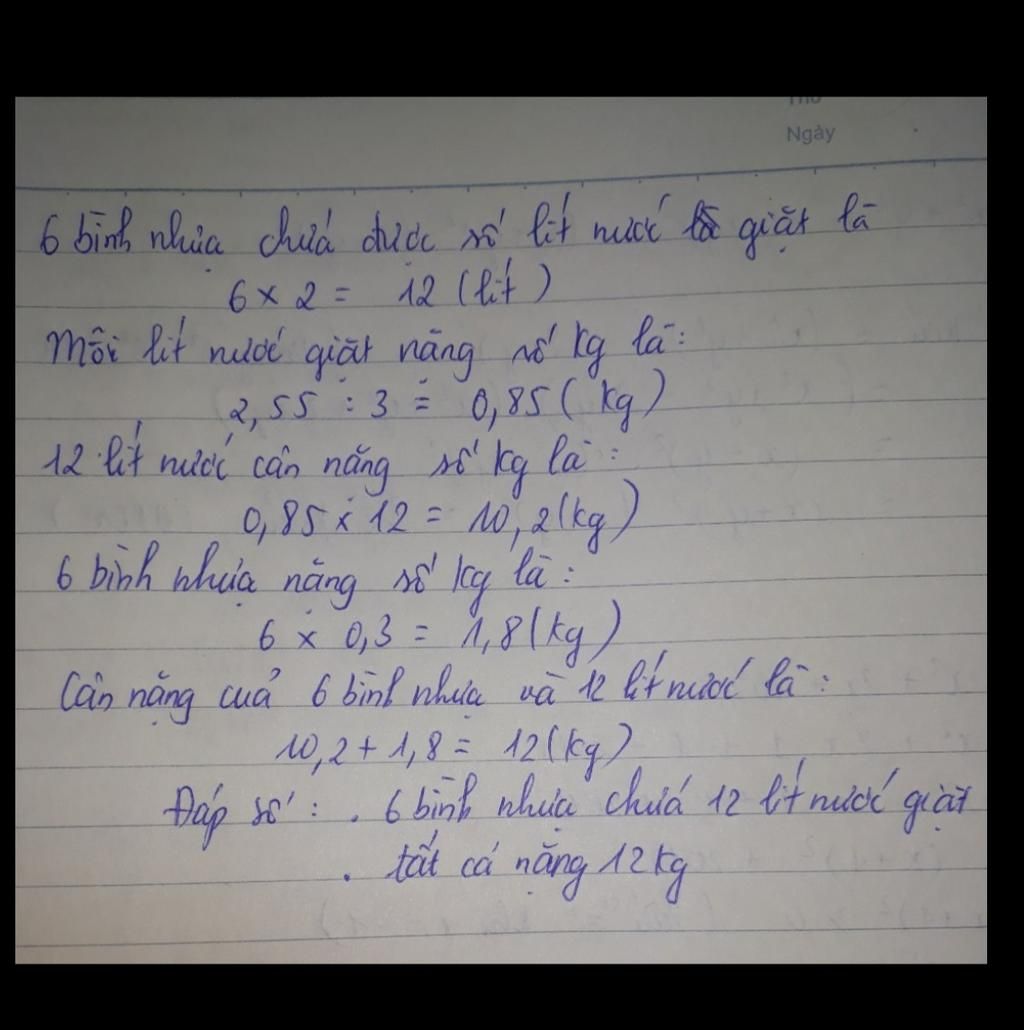 Thứ
Ngày
6 bình nhựa chứa được số lít nước giặt là
6 x 2 = 12 (lít)
Mỗi lít nước giặt nặng số kg là:
2,55 : 3 = 0,85 (kg)
12 lít nước cân nặng số kg là:
0,85 x 12 = 10,2 (kg)
6 bình nhựa nặng số kg là:
6 x 0,3 = 1,8 (kg)
Cân nặng cuả 6 bình nhựa và 12 lít nước là:
10,2 + 1,8 = 12 (kg)
Đáp số : . 6 bình nhựa chứa 12 lít nước giặt
. tất cả nặng 12 kg